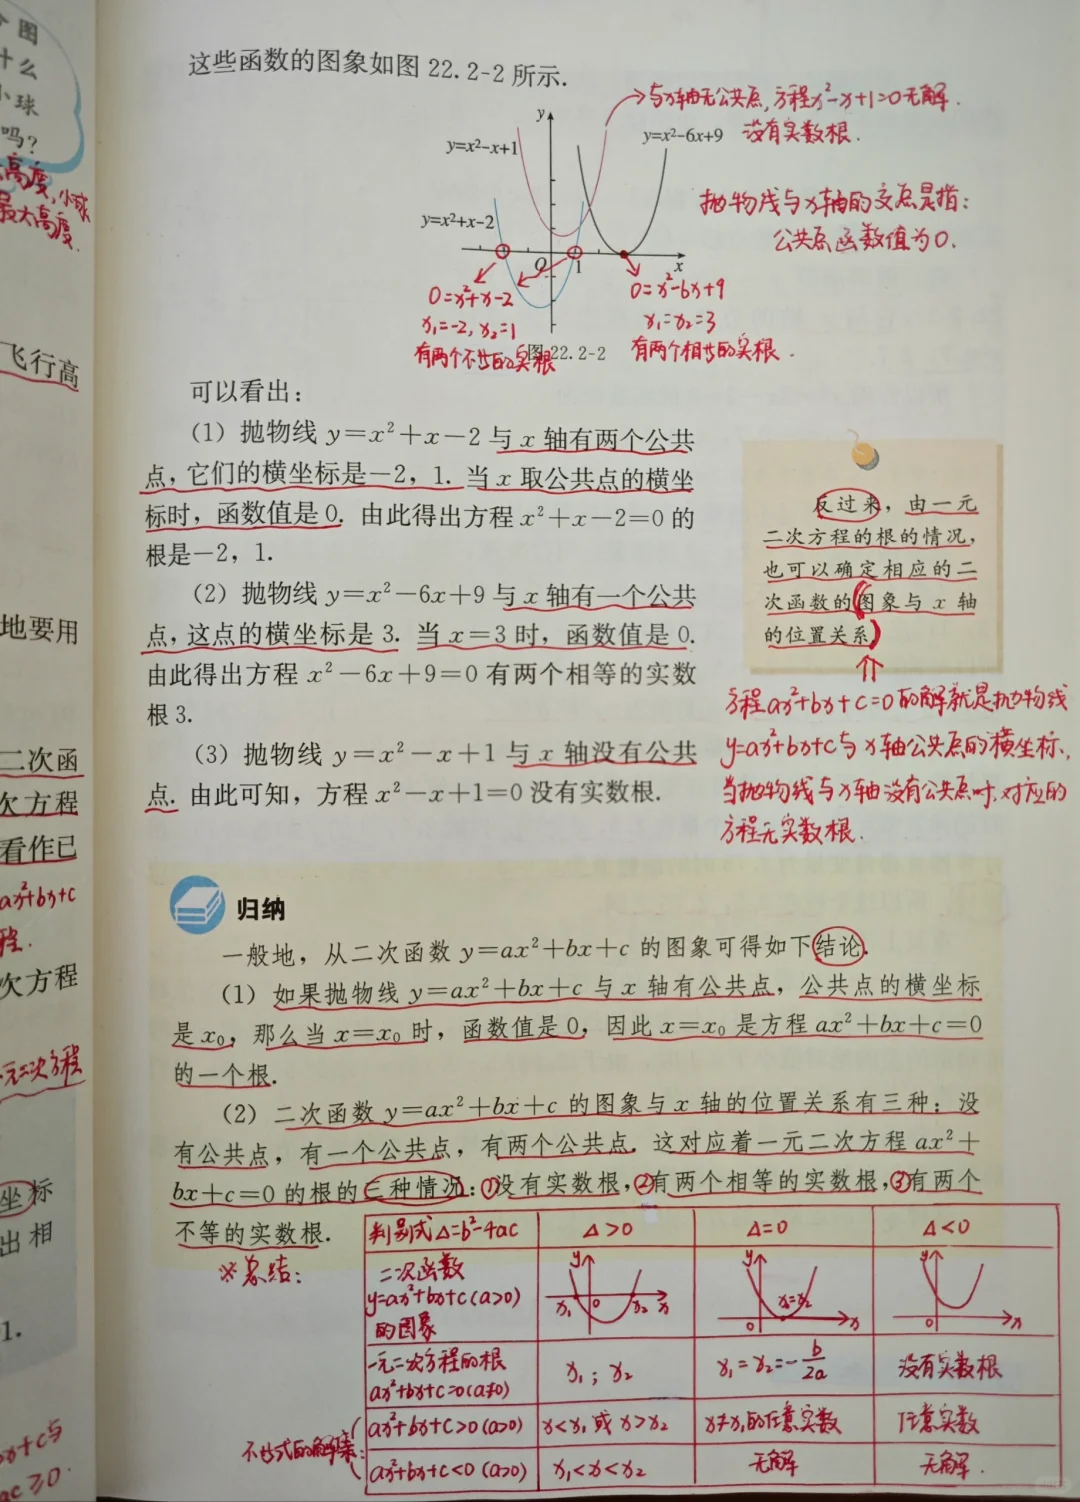 个图
什么
小球
吗?
高度,小球
最大高度.
飞行高
地要用
二次函
次方程
看作已
ax²+bx+c
程.
次方程
一元二次方程
坐标
出相
1.
bx+c与
ac≥0.
这些函数的图象如图 22.2-2 所示.
与x轴无公共点,方程x²-x+1=0无解.
没有实数根.
y
y=x²-x+1
y=x²-6x+9
抛物线与x轴的交点是指:
公共点函数值为0.
y=x²+x-2
O 1 x
0=x²+x-2
x₁=-2, x₂=1
有两个不等的实根
0=x²-6x+9
x₁=x₂=3
有两个相等的实根.
图 22.2-2
可以看出:
(1) 抛物线 y=x²+x-2 与 x 轴有两个公共
点,它们的横坐标是-2,1. 当 x 取公共点的横坐
标时,函数值是0. 由此得出方程 x²+x-2=0 的
根是-2,1.
(2) 抛物线 y=x²-6x+9 与 x 轴有一个公共
点,这点的横坐标是 3. 当 x=3 时,函数值是 0.
由此得出方程 x²-6x+9=0 有两个相等的实数
根3.
(3) 抛物线 y=x²-x+1 与 x 轴没有公共
点. 由此可知,方程 x²-x+1=0 没有实数根.
反过来,由一元
二次方程的根的情况,
也可以确定相应的二
次函数的(图象与 x 轴
的位置关系)
方程ax²+bx+c=0的解就是抛物线
y=ax²+bx+c与x轴公共点的横坐标,
当抛物线与x轴没有公共点时,对应的
方程无实数根.
归纳
一般地,从二次函数 y=ax²+bx+c 的图象可得如下结论.
(1) 如果抛物线 y=ax²+bx+c 与 x 轴有公共点,公共点的横坐标
是 x₀,那么当 x=x₀ 时,函数值是 0,因此 x=x₀ 是方程 ax²+bx+c=0
的一个根.
(2) 二次函数 y=ax²+bx+c 的图象与 x 轴的位置关系有三种:没
有公共点,有一个公共点,有两个公共点. 这对应着一元二次方程 ax²+
bx+c=0 的根的三种情况:①没有实数根,②有两个相等的实数根,③有两个
不等的实数根.
※总结:
判别式Δ=b²-4ac Δ>0 Δ=0 Δ<0
二次函数
y=ax²+bx+c(a>0)
的图象
y x₁ o x₂ x
y o x₁=x₂ x
y o x
一元二次方程的根
ax²+bx+c=0(a≠0)
x₁; x₂
x₁=x₂=-b/2a
没有实数根
不等式的解集:
ax²+bx+c>0(a>0) x<x₁ 或 x>x₂ x≠x₁的任意实数 任意实数
ax²+bx+c<0 (a>0) x₁<x<x₂ 无解 无解.